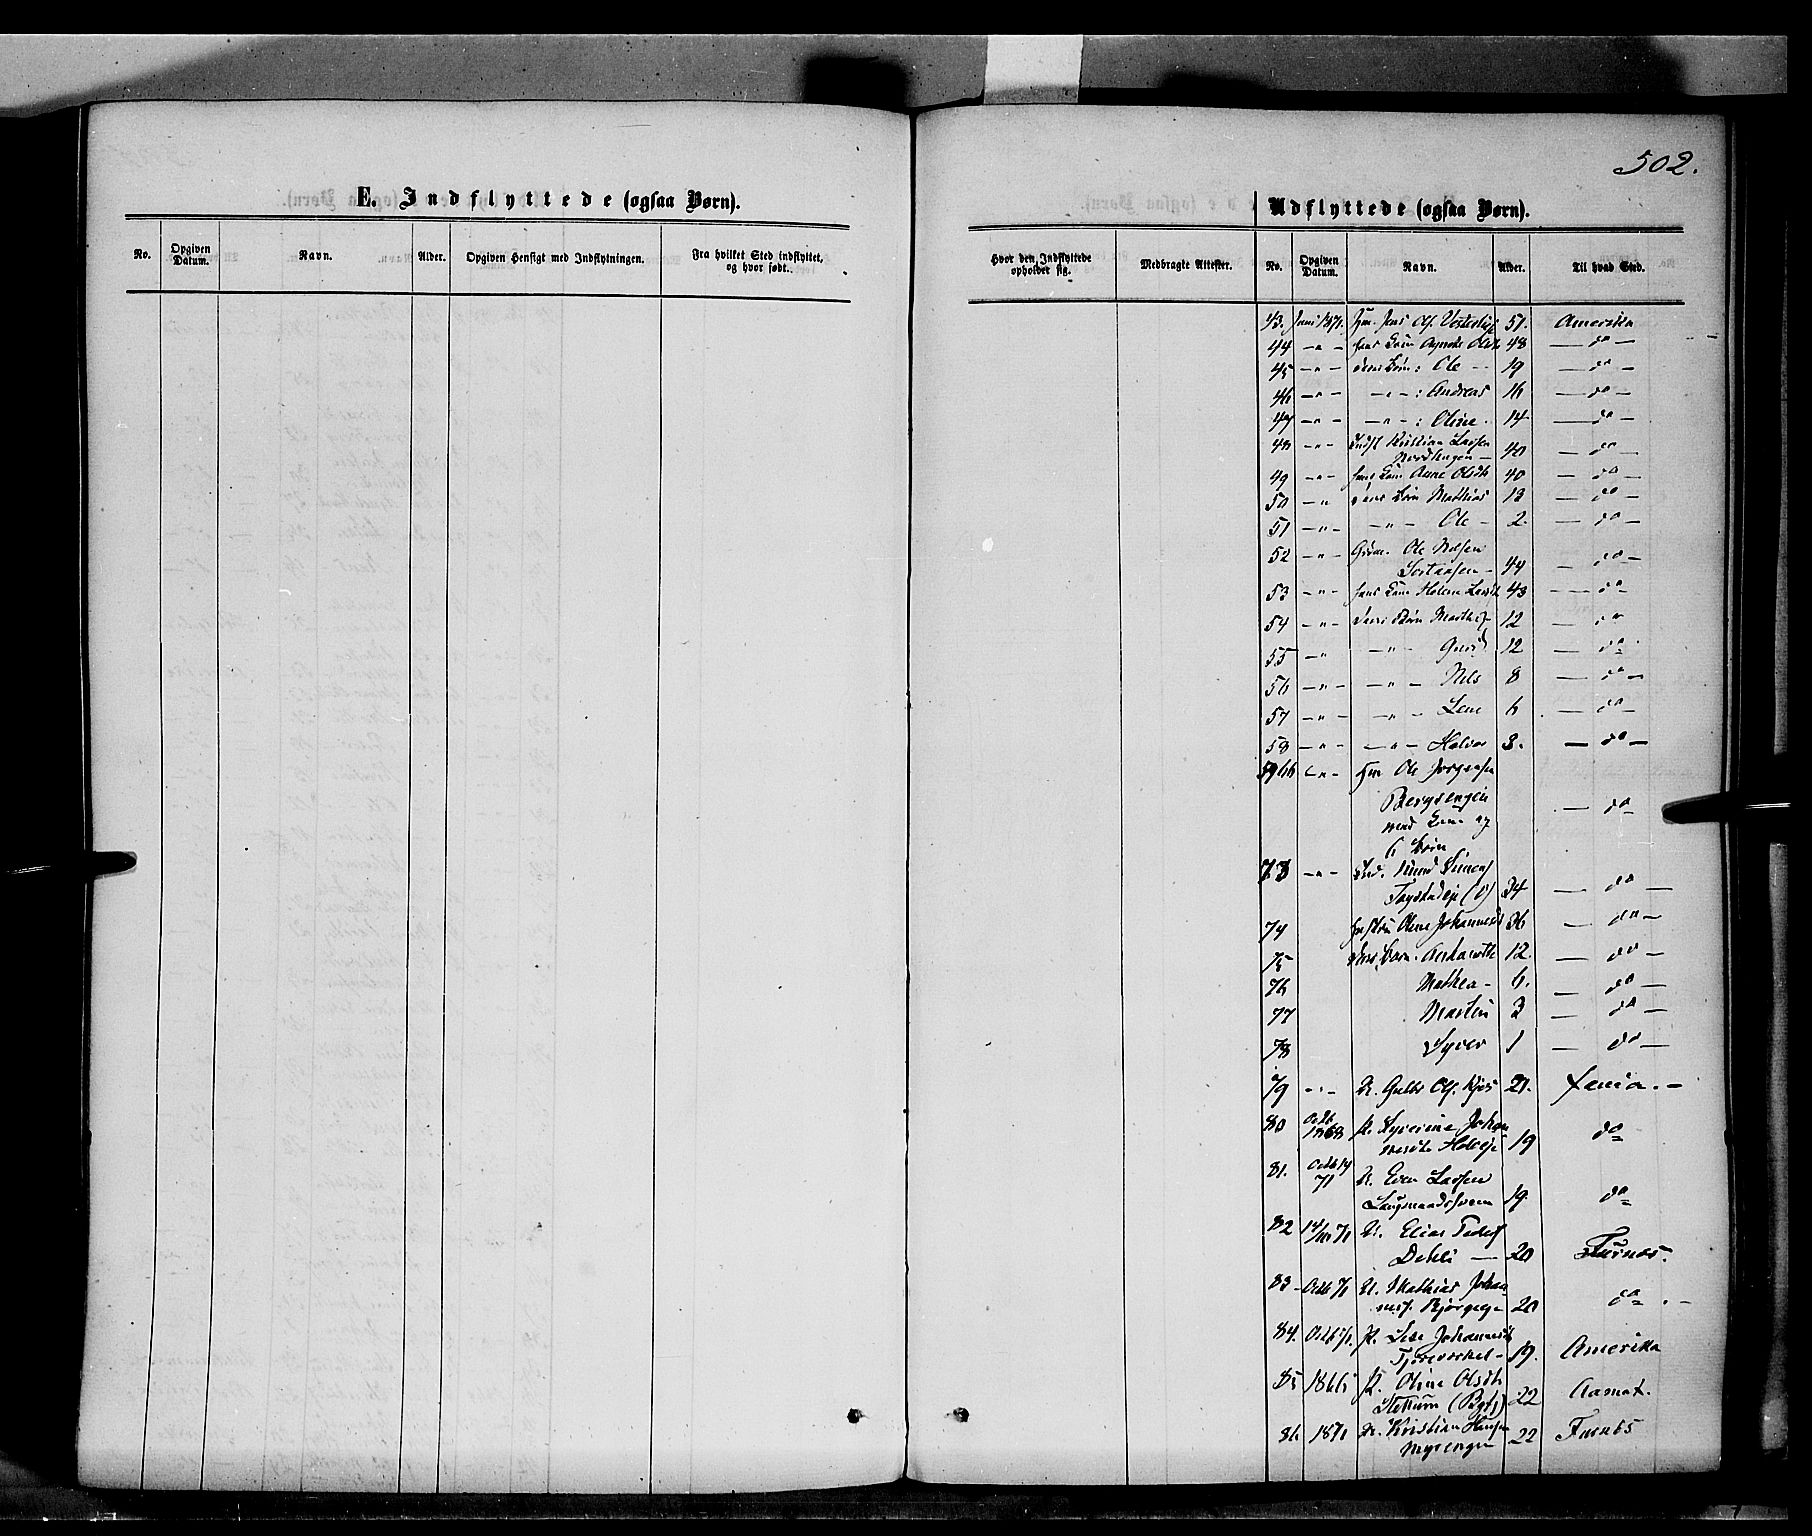 502.
E. Indflyttede (ogsaa Børn).
No. Opgiven Datum. Navn. Alder. Opgiven Hensigt med Indflytningen. Fra hvilket Sted indflyttet, og hvor født.
Udflyttede (ogsaa Børn).
Hvor den Indflyttede opholder sig. Medbragte Attester. No. Opgiven Datum. Navn. Alder. Til hvad Sted.
43. Juni 1871. Jens Ol. 51. Amerika
44 — " — Olsdt 48 — do —
45 — " — deres Børn: Ole — 19 — do —
46 — " — — " — : Andreas 16 — do —
47 — " — — " — : Oline 14 — do —
48 — " — Indst Kristian Larsen
Nordhagen — 40 — do —
49 — " — hans Kone Anne Olsdt 40 — do —
50 — " deres Børn Mathias 13 — do —
51 — " — — " — Ole — 2. — do —
52 — " — Ole
44 — do —
53 — " — hans Kone Helene 43 — do —
54 — " — deres Børn Marthe 12 — do
55 — " — " — 12 — do
56 — " — — " — Nils 8 — do —
57 — " — — " — Lene 6 — do —
58 — " — — " — Halvor 3. — do —
59/66 — " — Ole Jørgensen
Bergsengen
med Kone og
6 Børn — do
73 — " — Simens
34 — do —
74 Oline Johannesd 36 — do —
75 deres Børn. 12. — do —
76 Mathea — 6. — do —
77 Martin 3 — do —
78 Syver 1 — do —
79 - " - U. Gulbr Ols. Kjos 21. Xania. —
80 Octb 1868 P. Syverine Johan
nesdt 19 do
81. Octb 14 71 U. Even Larsen
19. do
82 14/10 71 U. Elias Peders
Dehli — 20 Furnæs.
83 - Octb 71 U. Mathias Johan
nes. 20 do. —
84. Octb 71. P. Lise Johannesdt
19. Amerika
85 1866 P. Oline Olsdt
Stettum 22 Aamot.
86 1871 U. Kristian Hansen
Myrengen 22 Furnæs